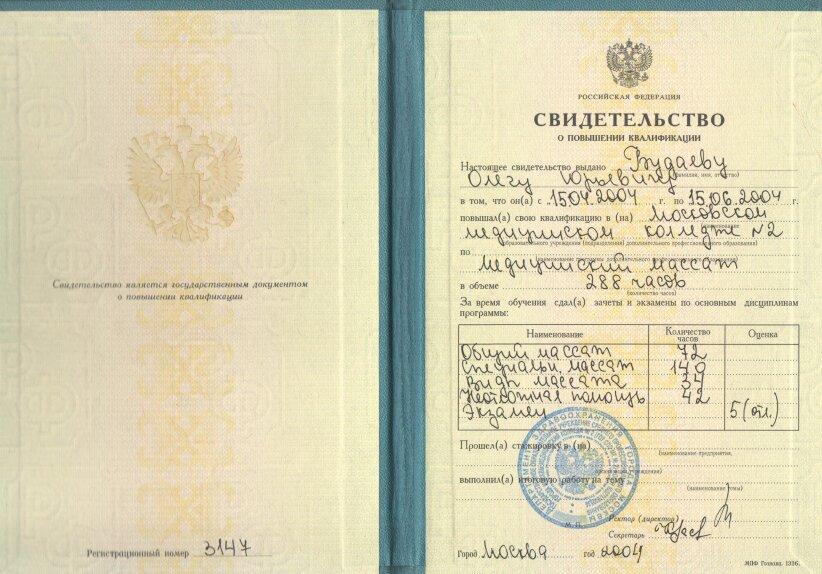 Свидетельство является государственным документом
о повышении квалификации
Регистрационный номер 3147
РОССИЙСКАЯ ФЕДЕРАЦИЯ
СВИДЕТЕЛЬСТВО
О ПОВЫШЕНИИ КВАЛИФИКАЦИИ
Настоящее свидетельство выдано Будаеву
(фамилия, имя, отчество)
Олегу Юрьевичу
в том, что он(а) с 15.04.2004 г. по 15.06.2004 г.
повышал(а) свою квалификацию в (на) Московском
(наименование
медицинском колледже №2
образовательного учреждения (подразделения) дополнительного профессионального образования)
по медицинский массаж
в объеме 288 часов
(количество часов)
За время обучения сдал(а) зачеты и экзамены по основным дисциплинам
программы:
Наименование Количество часов Оценка
Общий массаж 72
Специальн. массаж 140
Виды массажа 34
Неотложная помощь 42
Экзамен 5 (отл.)
Прошел(а) стажировку в (на)
(наименование предприятия,
учреждения)
выполнил(а) итоговую работу на тему
(наименование темы)
М.П.
Ректор (директор)
Секретарь
Город Москва год 2004
МПФ Гознака. 1996.